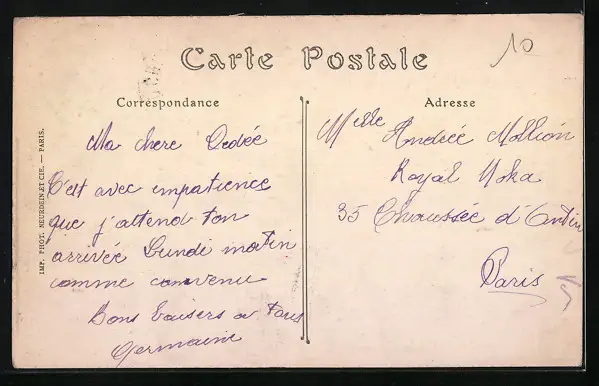 Carte Postale
10
Correspondance
Ma chere Dedée
C'est avec impatience
que j'attend ton
arrivée Lundi matin
comme convenu
Bons baisers a tous
Germaine
Adresse
Melle Andrée Mollion
Royal Moka
35 Chaussée d'Antin
Paris
IMP. PHOT. NEURDEIN ET CIE. — PARIS.